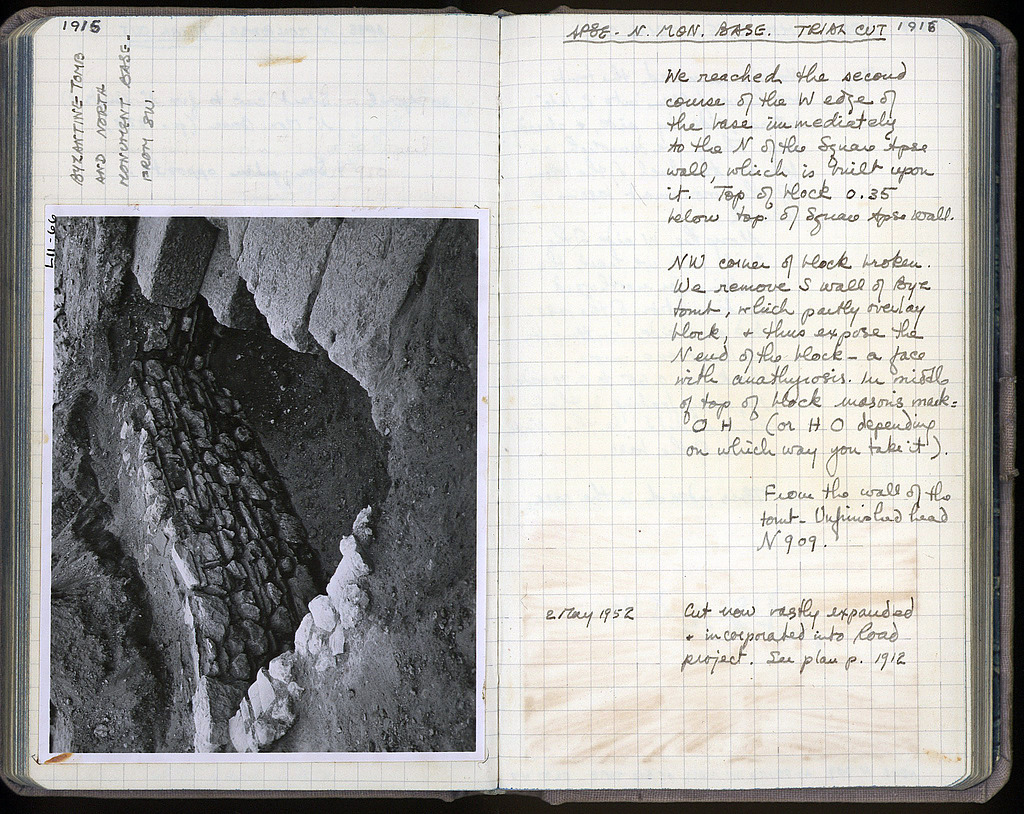 1915
BYZANTINE TOMB
AND NORTH
MONUMENT BASE.
FROM SW.
LII-66
APSE - N. MON. BASE. TRIAL CUT 1916
We reached the second
course of the W edge of
the base immediately
to the N of the Square Apse
wall, which is built upon
it. Top of block 0.35
below top of Square Apse wall.
NW corner of block broken.
We remove S wall of Byz
tomb, which partly overlay
block, & thus expose the
N end of the block - a face
with anathyrosis. In middle
of top of block masons mark:
O H (or H O depending
on which way you take it).
From the wall of the
tomb - Unfinished head
N 909.
2 May 1952 Cut now vastly expanded
& incorporated into Road
project. See plan p. 1912